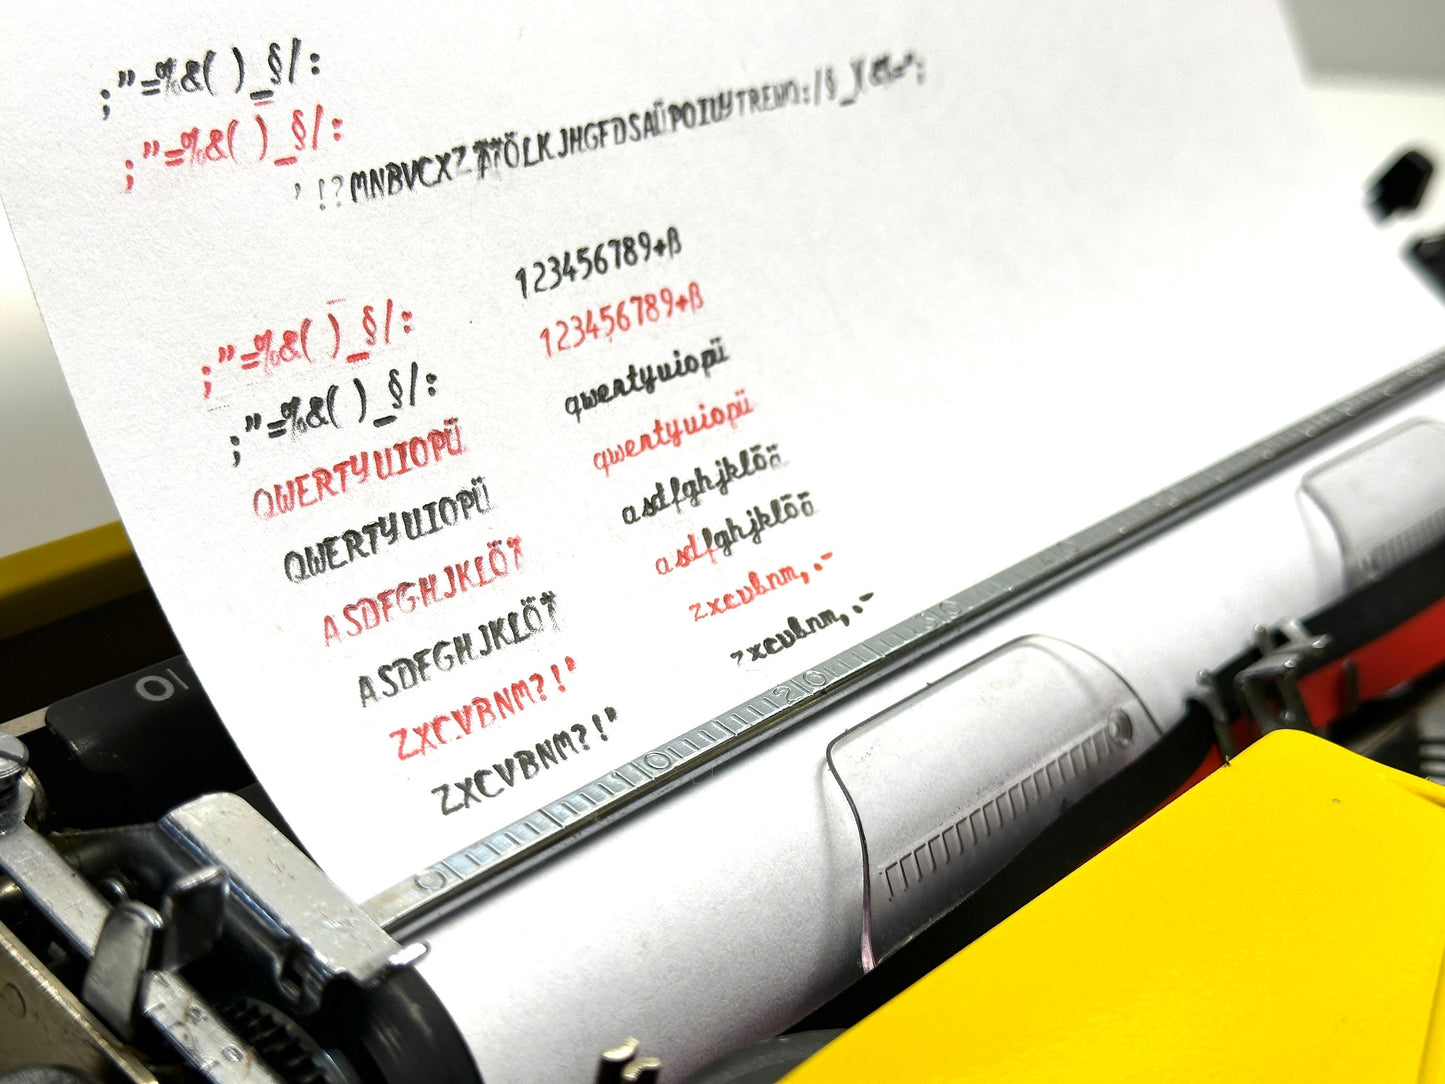 ;"=%&( )_§/:
;"=%&( )_§/:
'!?MNBVCXZ ÄÖLKJHGFDSAÜPOIUYTREWQ:/§_)(&%=";
123456789+ß
123456789+ß
;"=%&( )_§/:
;"=%&( )_§/:
qwertyuiopü
qwertyuiopü
QWERTYUIOPÜ
QWERTYUIOPÜ
asdfghjklöä
asdfghjklöä
ASDFGHJKLÖÄ
ASDFGHJKLÖÄ
zxcvbnm,.-
zxcvbnm,.-
ZXCVBNM?!'
ZXCVBNM?!'
0 10 20 30
0